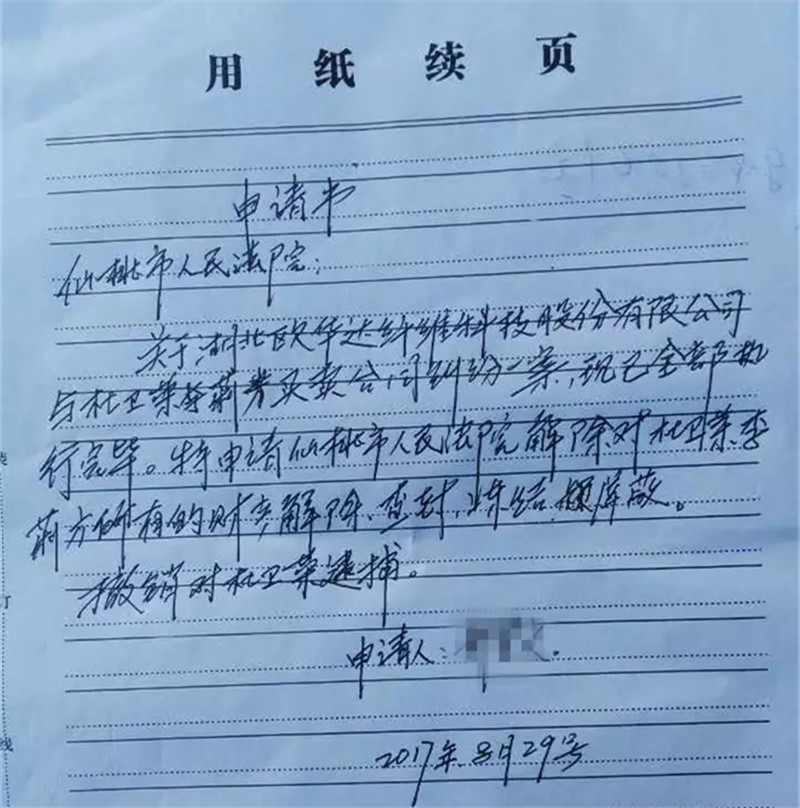 用纸续页
申请书
仙桃市人民法院:
关于湖北欧华达纤维科技股份有限公司
与杜卫荣李莉芳买卖合同纠纷一案,现已全部执
行完毕。特申请仙桃市人民法院解除对杜卫荣李
莉方所有的财产解除、查封、冻结、屏蔽。
撤销对杜卫荣逮捕。
申请人:
2017年8月29号
订
线